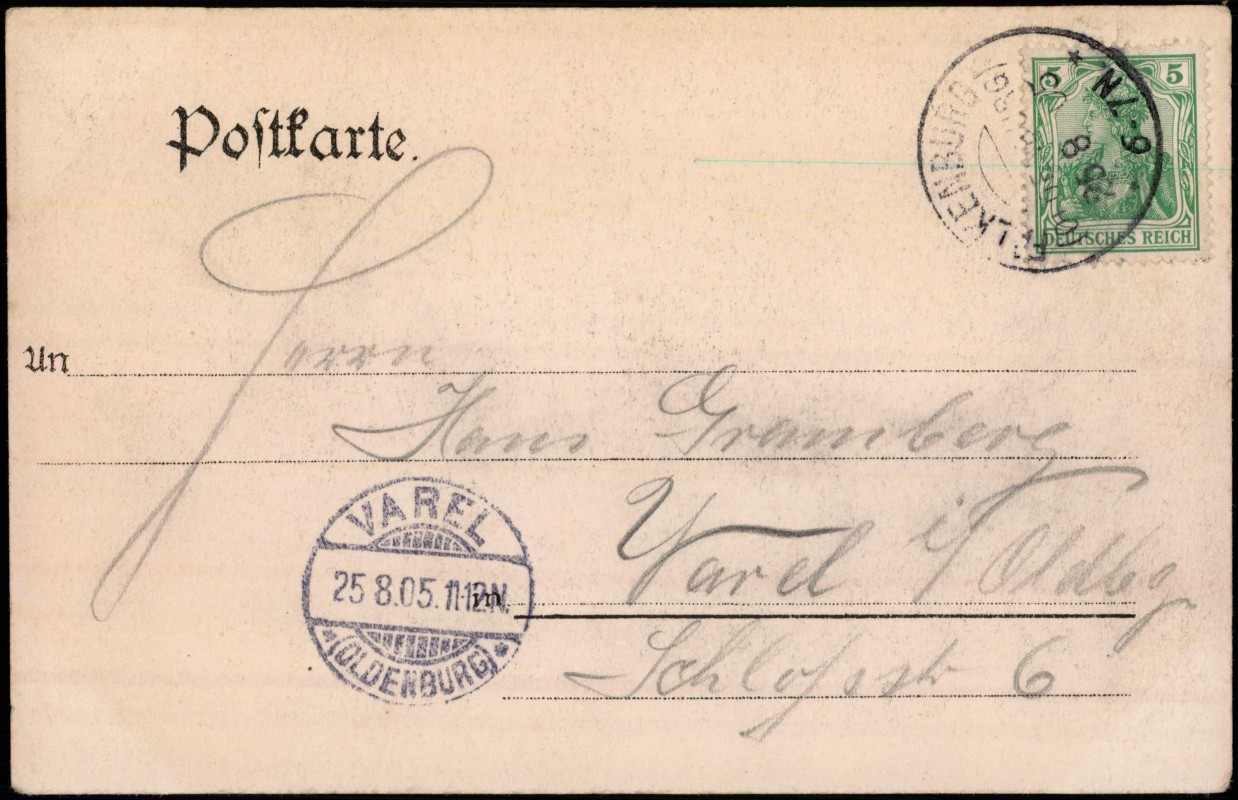 Postkarte.
5 5
DEUTSCHES REICH
FALKENBURG
25 8
6-7N
An
Herrn
Hans Gramberg
Varel i/ Oldbg
in
Schloßstr 6
VAREL
25 8.05.11-12N.
* (OLDENBURG) *